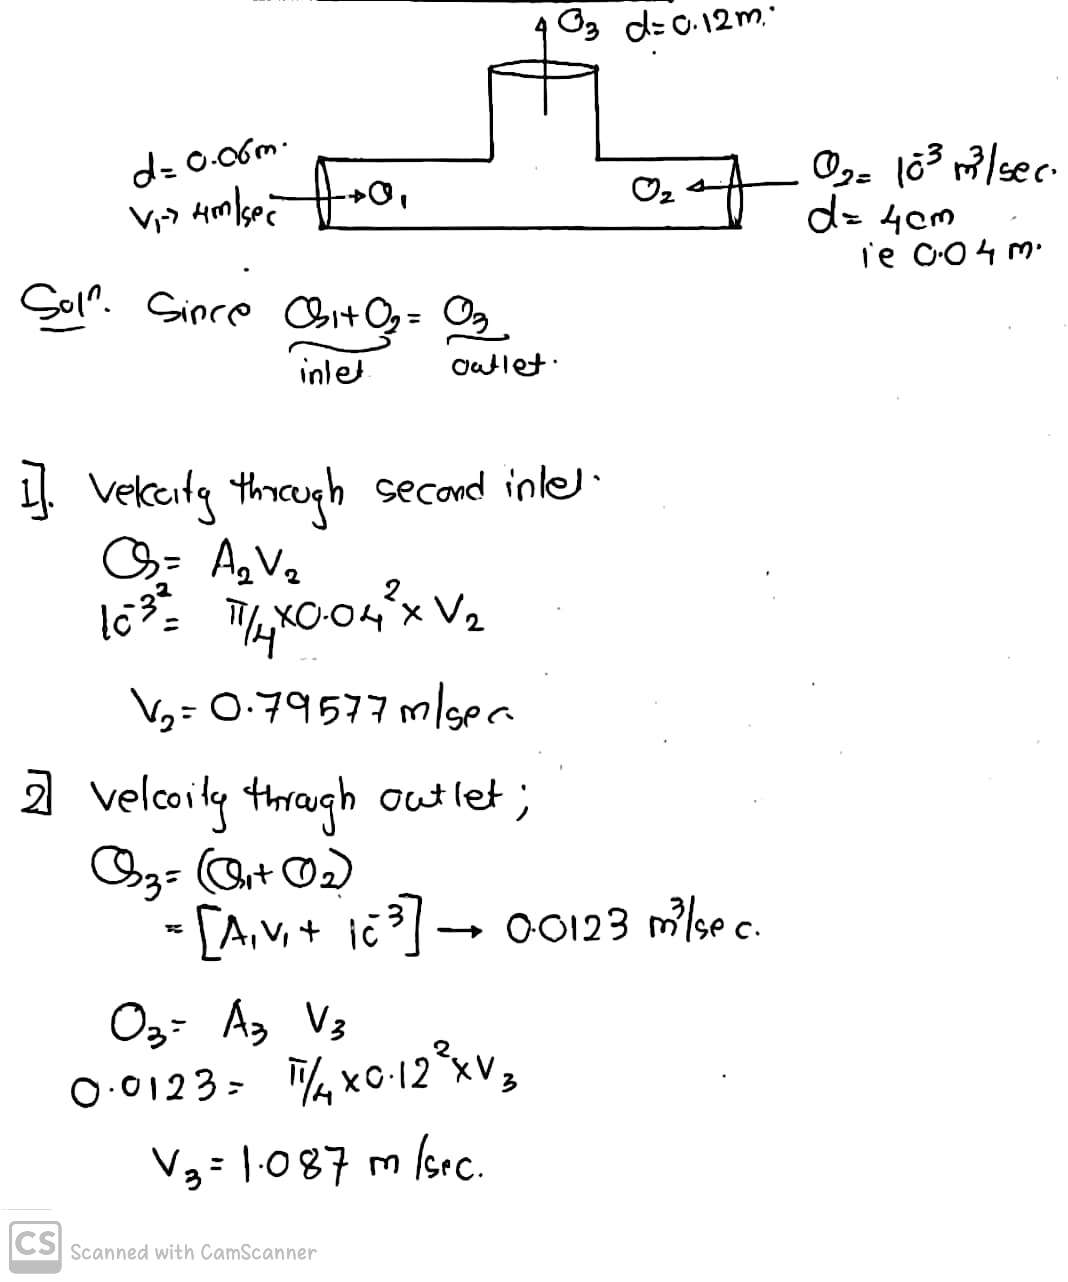 Q3 d=0.12m.
d=0.06m.
V1→ 4m/sec
Q1
Q2
Q2= 10^-3 m^3/sec.
d= 4cm
ie 0.04 m.
Soln. Since Q1+Q2= Q3
inlet outlet.
1]. Velcoity through second inlet.
Q= A2V2
10^-3 = π/4×0.04^2× V2
V2=0.79577 m/sec
2] Velcoity through outlet;
Q3= (Q1+Q2)
= [A1V1+ 10^-3] → 0.0123 m^3/sec.
Q3= A3 V3
0.0123= π/4×0.12^2×V3
V3=1.087 m/sec.
CS Scanned with CamScanner